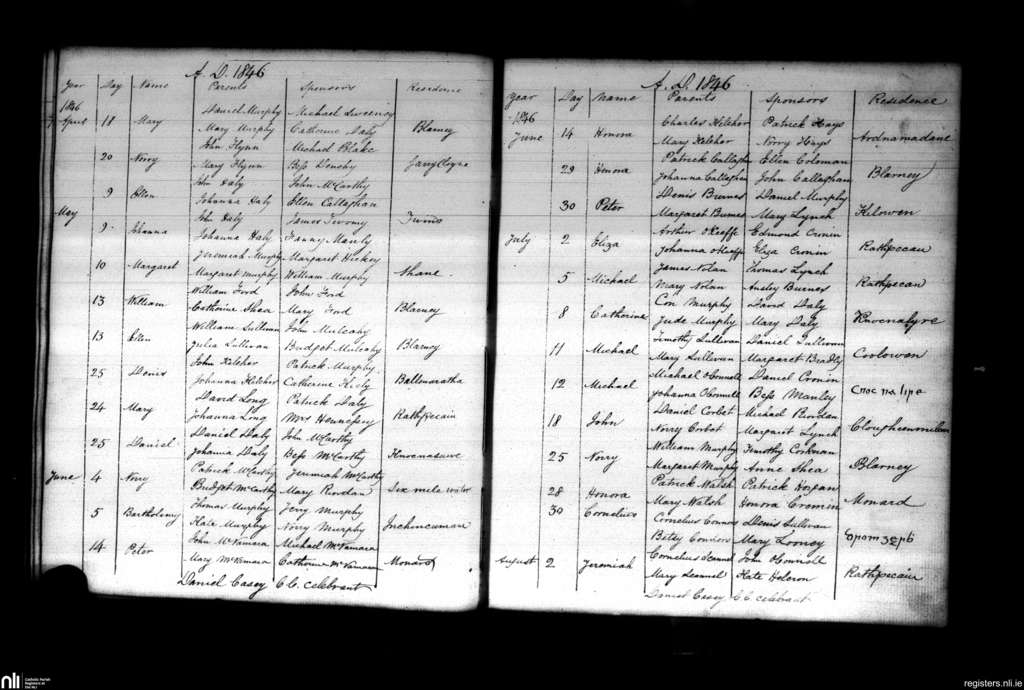 A. D. 1846
Year Day Name Parents Sponsors Residence
1846 Daniel Murphy Michael Sweeney
April 18 Mary Mary Murphy Catherine Daly Blarney
John Flynn Michael Blake
20 Norry Mary Flynn Bess Garry Cloyne
John Haly John McCarthy
9 Ellen Johanna Haly Ellen Callaghan
May John Haly James
9 Johanna Johanna Haly Fanny Manly
Jeremiah Murphy Margaret Hickey
10 Margaret Margaret Murphy William Murphy Shane
William Ford John Ford
13 William Catherine Shea Mary Ford Blarney
William Sullivan John Mulcahy
13 Ellen Julia Sullivan Budget Mulcahy Blarney
John Kelcher Patrick Murphy
25 Denis Johanna Kelcher Catherine
David Long Patrick Daly
24 Mary Johanna Long Mrs Hennessy Rathpecain
Daniel Daly John McCarthy
25 Daniel Johanna Daly Bess McCarthy
Patrick McCarthy Jeremiah McCarthy
June 4 Norry Budget McCarthy Mary Riordan Six mile water
Thomas Murphy Jerry Murphy
5 Bartholemy Kate Murphy Norry Murphy
John McNamara Michael McNamara
14 Peter Mary McNamara Catherine McNamara Monard
Daniel Casey C.C. celebrant
A. D. 1846
Year Day Name Parents Sponsors Residence
1846 Charles Kelcher Patrick Hays
June 14 Honora Mary Kelcher Norry Hays Ardnamadane
Patrick Callaghan Ellen Coloman
29 Honora Johanna Callaghan John Callaghan Blarney
Denis Burnes Daniel Murphy
30 Peter Margaret Burnes Mary Lynch Kilowen
Arthur O'Keeffe Edmond Cronin
July 2 Eliza Johanna O'Keeffe Eliza Cronin Rathpecan
James Nolan Thomas Lynch
5 Michael Mary Nolan Ansty Burnes Rathpecan
Con Murphy David Daly
8 Catherine Jude Murphy Mary Daly
Timothy Sullivan Daniel Sullivan
11 Michael Mary Sullivan Margaret Bradly Coolowen
Michael O'Connell Daniel Cronin
12 Michael Johanna O'Connell Bess Manley
Daniel Corbet Michael Riordan
18 John Norry Corbet Margaret Lynch
William Murphy Timothy Corkran
25 Norry Margaret Murphy Anne Shea Blarney
Patrick Walsh Patrick Horgan
28 Honora Mary Walsh Honora Cronin Monard
30 Cornelius Cornelius Connors Denis Sullivan
Betsy Connors Mary Looney
Cornelius John
August 2 Jeremiah Mary Kate Rathpecain
Daniel Casey C.C. celebrant
nli
Catholic Parish
Registers at
the NLI
registers.nli.ie